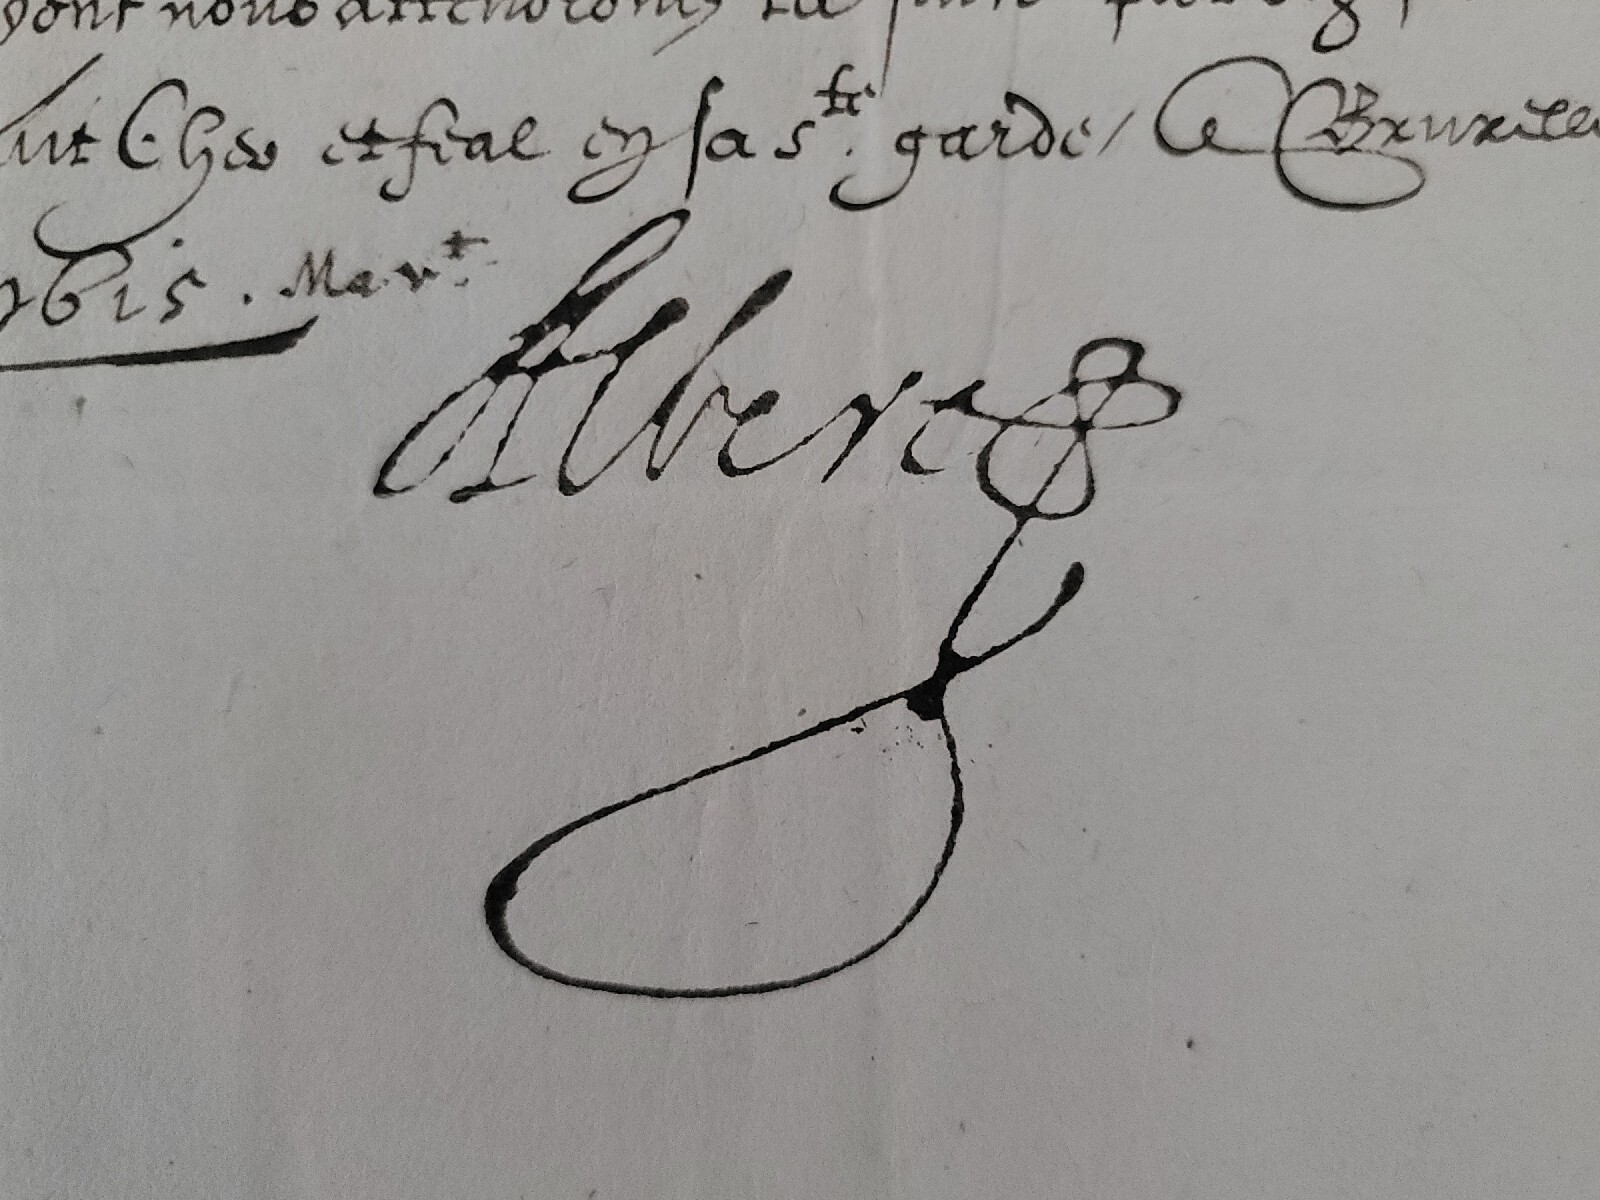 dont nous attendrons la
Cher et feal en sa s.te garde / a Bruxelles
1615. Mar.t
Albert